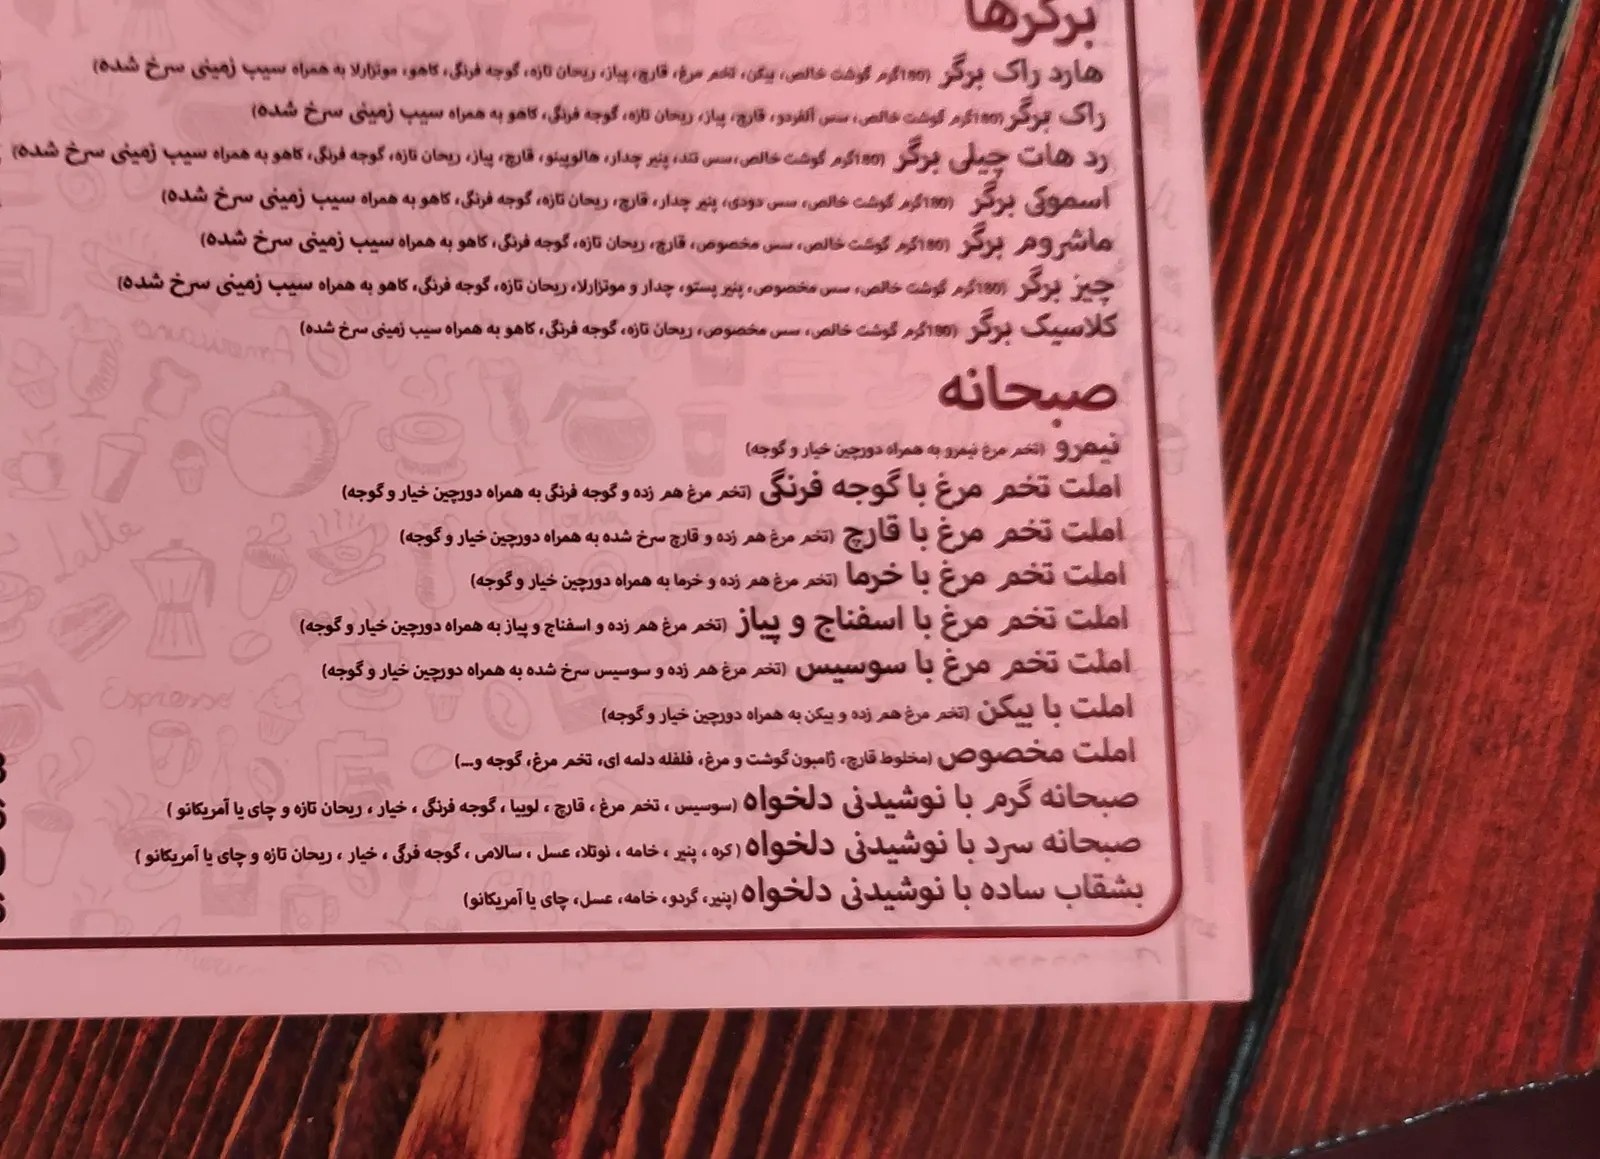 برگرها
هارد راک برگر (180گرم گوشت خالص، بیکن، تخم مرغ، قارچ، پیاز، ریحان تازه، گوجه فرنگی، کاهو، موتزارلا به همراه سیب زمینی سرخ شده)
راک برگر (180گرم گوشت خالص، سس آلفردو، قارچ، پیاز، ریحان تازه، گوجه فرنگی، کاهو به همراه سیب زمینی سرخ شده)
رد هات چیلی برگر (180گرم گوشت خالص، سس تند، پنیر چدار، هالوپینو، قارچ، پیاز، ریحان تازه، گوجه فرنگی، کاهو به همراه سیب زمینی سرخ شده)
اسموکی برگر (180گرم گوشت خالص، سس دودی، پنیر چدار، قارچ، ریحان تازه، گوجه فرنگی، کاهو به همراه سیب زمینی سرخ شده)
ماشروم برگر (180گرم گوشت خالص، سس مخصوص، قارچ، ریحان تازه، گوجه فرنگی، کاهو به همراه سیب زمینی سرخ شده)
چیز برگر (180گرم گوشت خالص، سس مخصوص، پنیر پستو، چدار و موتزارلا، ریحان تازه، گوجه فرنگی، کاهو به همراه سیب زمینی سرخ شده)
کلاسیک برگر (180گرم گوشت خالص، سس مخصوص، ریحان تازه، گوجه فرنگی، کاهو به همراه سیب زمینی سرخ شده)
صبحانه
نیمرو (تخم مرغ نیمرو به همراه دورچین خیار و گوجه)
املت تخم مرغ با گوجه فرنگی (تخم مرغ هم زده و گوجه فرنگی به همراه دورچین خیار و گوجه)
املت تخم مرغ با قارچ (تخم مرغ هم زده و قارچ سرخ شده به همراه دورچین خیار و گوجه)
املت تخم مرغ با خرما (تخم مرغ هم زده و خرما به همراه دورچین خیار و گوجه)
املت تخم مرغ با اسفناج و پیاز (تخم مرغ هم زده و اسفناج و پیاز به همراه دورچین خیار و گوجه)
املت تخم مرغ با سوسیس (تخم مرغ هم زده و سوسیس سرخ شده به همراه دورچین خیار و گوجه)
املت با بیکن (تخم مرغ هم زده و بیکن به همراه دورچین خیار و گوجه)
املت مخصوص (مخلوط قارچ، ژامبون گوشت و مرغ، فلفله دلمه ای، تخم مرغ، گوجه و...)
صبحانه گرم با نوشیدنی دلخواه (سوسیس ، تخم مرغ ، قارچ ، لوبیا ، گوجه فرنگی ، خیار ، ریحان تازه و چای یا آمریکانو )
صبحانه سرد با نوشیدنی دلخواه ( کره ، پنیر ، خامه ، نوتلا، عسل ، سالامی ، گوجه فرگی ، خیار ، ریحان تازه و چای یا آمریکانو )
بشقاب ساده با نوشیدنی دلخواه (پنیر، گردو، خامه، عسل، چای یا آمریکانو)
Americano
Latte
Espresso